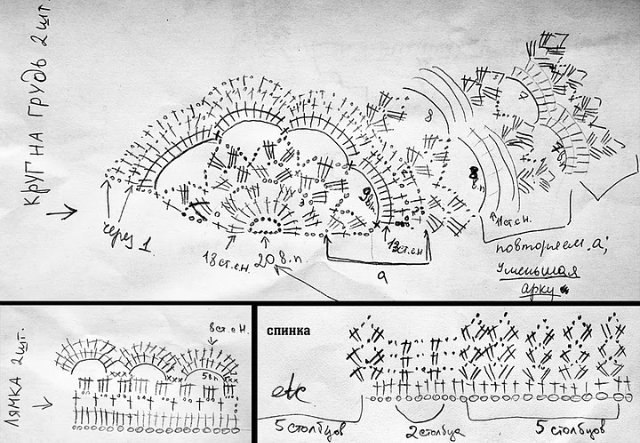 КРУГ НА ГРУДЬ 2 шт.
8
7
7 в.п
8 в.п
9 в.п
через 1
13 ст.с н.
20 в.п
13 ст.с н
а
11 ст.с н.
повторяем „а",
уменьшая
арку
ЛЯМКА 2 шт.
8 ст. с Н.
5 в п
спинка
etc
5 столбцов
2 столбца
5 столбцов